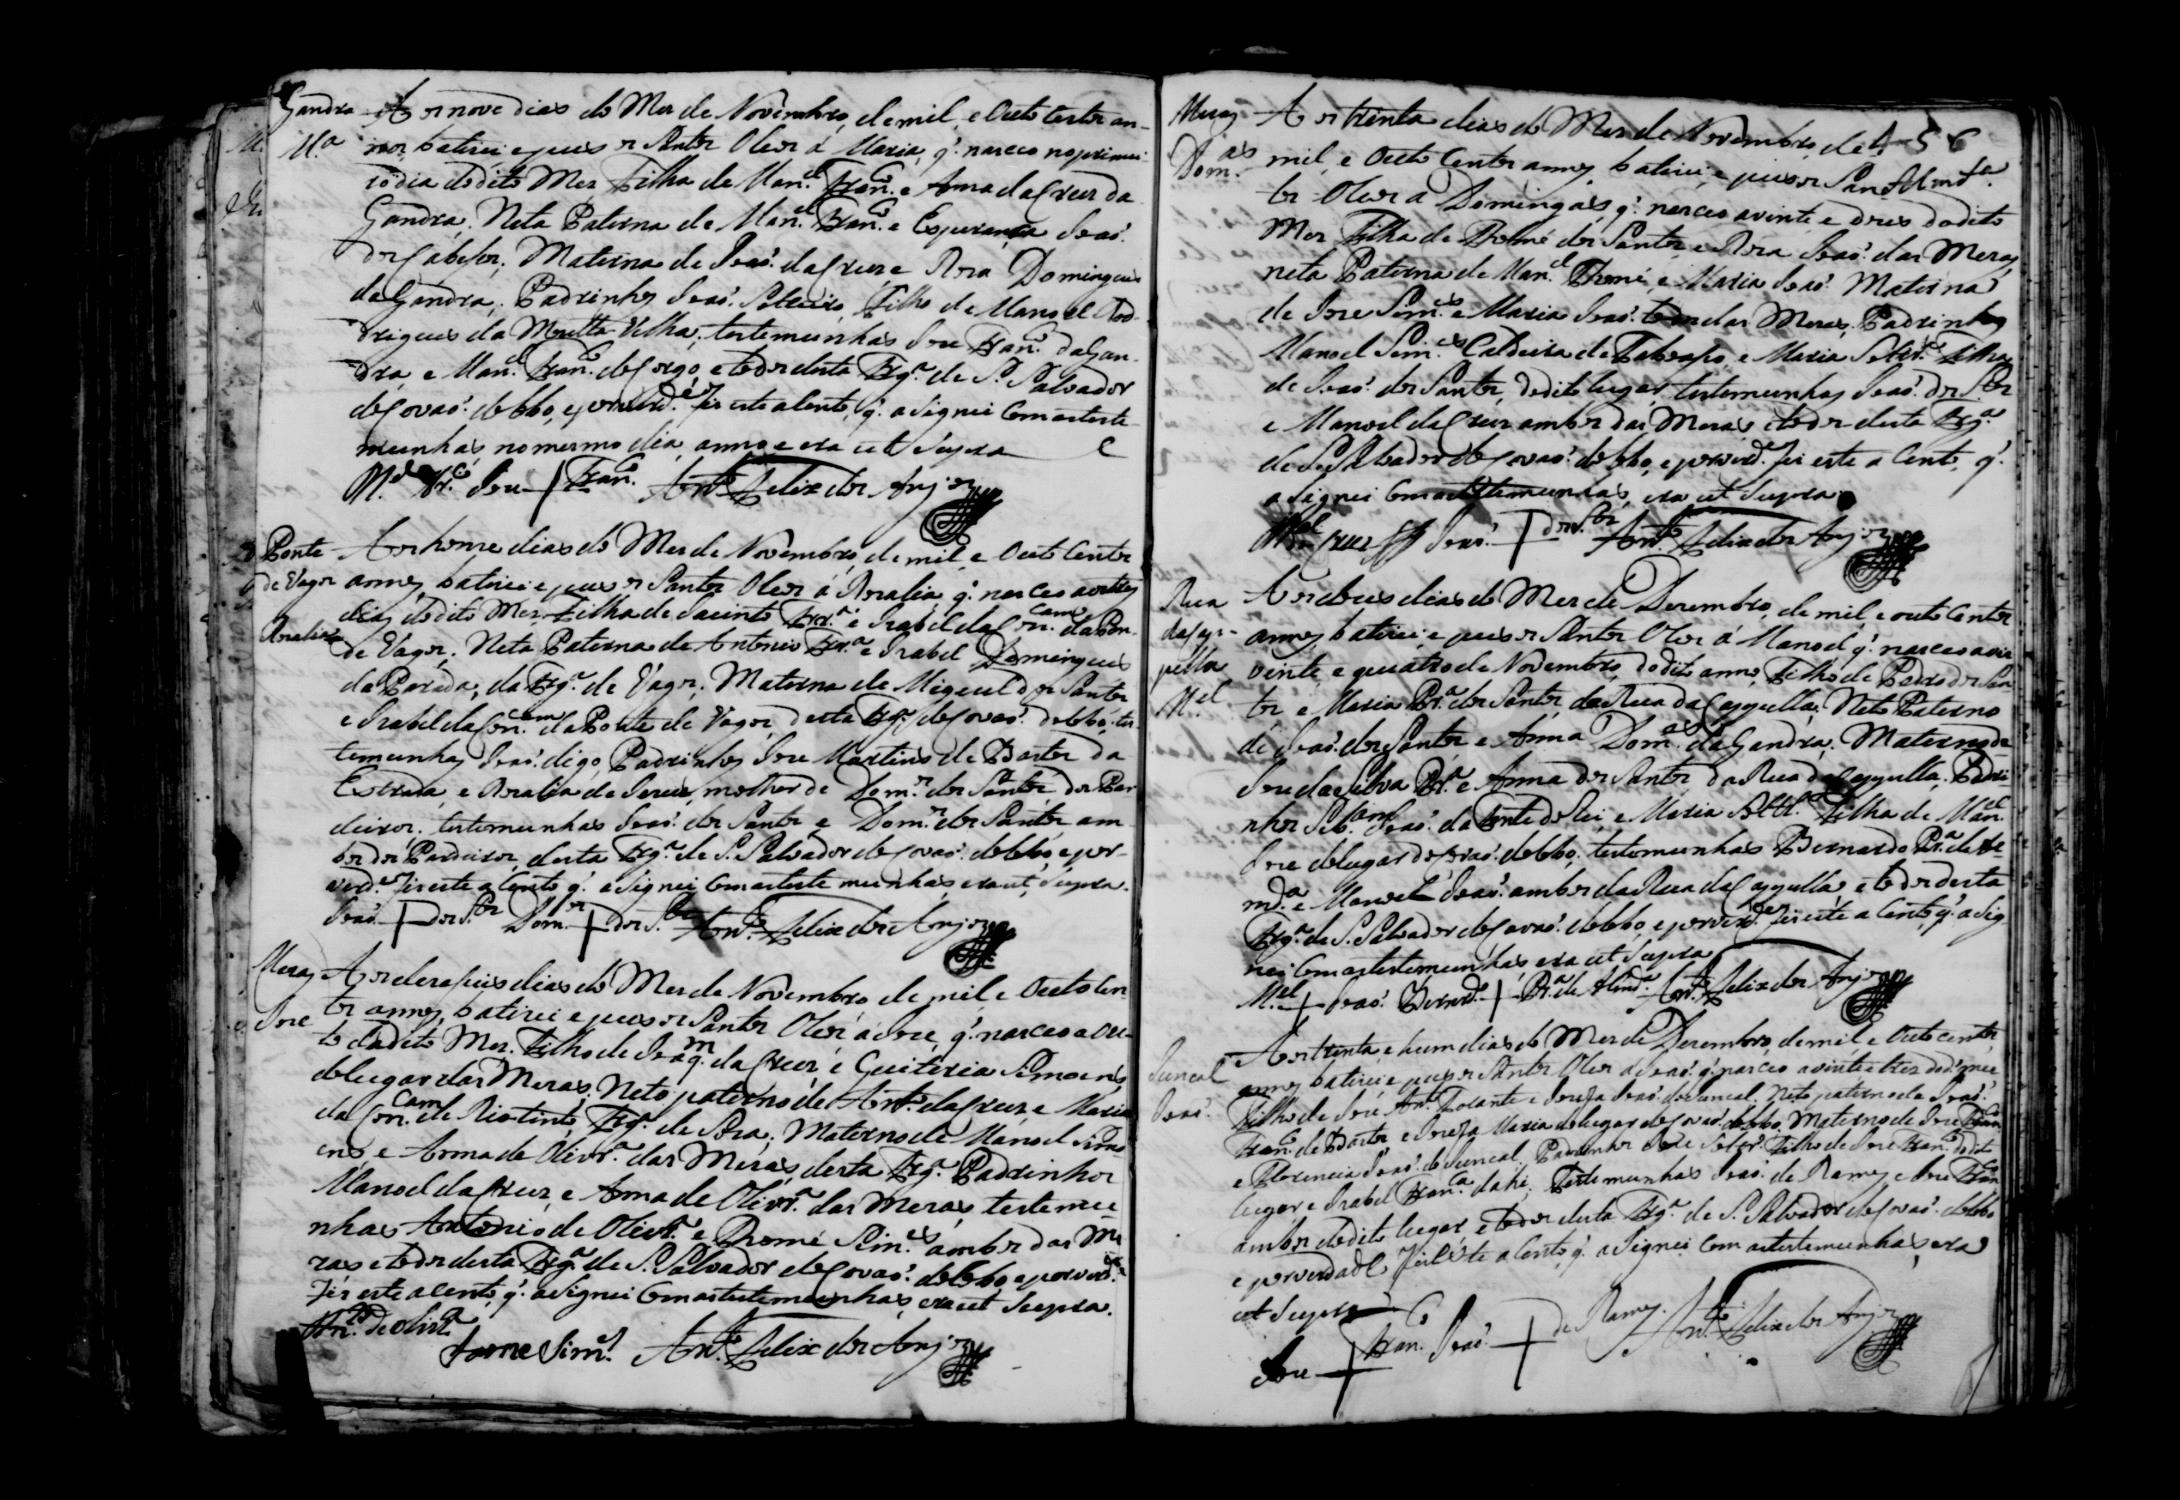 Gandra
M.ª
Aos nove dias do Mes de Novembro, de mil, e Outo Centos an-
nos, batizei e puz os Santos Oleos á Maria, q̃. nasceo no primei-
ro dia do dito Mes Filha de Man.el Fran.co e Anna da Cruz da
Gandra. Neta Paterna de Man.el Fran.co e Esperança Joaõ.
dos Cabesos; Materna de Joaõ. da Cruz e Roza Domingues
da Gandra; Padrinhos Joaõ. Solteiro, Filho de Manoel Ro-
drigues da Moutta Velha, testemunhas Joze Fran.co da Gan-
dra e Man.el Fran.co do Corgo, e todos desta Frg.ª de S. Salvador
de Covaõ. do Lobo, e por verd.e fiz este asento, q̃. asignei Com as teste-
munhas, no mesmo dia, anno e era ut Supra
M.el Fr.co Joze + Fran.co Ant.o Felix dos Anjos
Ponte
de Vagos
Aralia
Aos honze dias do Mes de Novembro, de mil, e Outo Centos
annos, batizei e puz os Santos Oleos á Aralia q̃. nasceo aos tres
dias do dito Mes, Filha de Jacinto Frr.ª e Izabel da Con.cam da Pon.
de Vagos; Neta Paterna de Antonio Frr.ª e Izabel Domingues
da Parada, da Frg.ª de Vagos; Materna de Miguel dos Santos
e Izabel da Con.cam da Ponte de Vagos, desta Frg.ª de Covaõ. do Lobo, tes-
temunhas Joaõ. digo, Padrinhos Joze Martins de Bastos da
Estrada, e Aralia de Jezus, molher de Dom.os dos Santos, dos Par-
deiros. testemunhas Joaõ. dos Santos e Dom.os dos Santos am-
bos dos Pardeiros, desta Frg.ª de S. Salvador de Covaõ. do Lobo e por
verd.e fiz este asento q̃. asignei Com as teste munhas era ut Supra.
Joaõ. + dos S.tos Dom.os + dos S.tos Ant.o Felix dos Anjos
Mezas
Joze
Aos dezaseis dias do Mes de Novembro de mil, e Outo Cen-
tos annos, batizei e puz os Santos Oleos á Joze, q̃. nasceo a ou-
to do dito Mes. Filho de Joaq.m da Cruz, e Guiteria Simoens
do lugar das Mezas. Neto paterno de Ant.o da Cruz, e Maria
da Con.cam de Rio tinto, Frg.ª de Soza; Materno de Manoel Simo-
ens e Anna de Olivr.ª das Mezas, desta Frg.ª Padrinhos
Manoel da Cruz, e Anna de Olivr.ª das Mezas, testemu-
nhas Antonio de Olivr.ª e Thomé Sim.es ambos das Me-
zas e todos desta Frg.ª de S. Salvador de Covaõ. do Lobo e por verd.e
fiz este asento, q̃. asignei Com as testemunhas, era ut Supra.
Ant.o de Olivr.ª
Tome Sim.es Ant.o Felix dos Anjos
Mezas
Dom.as
456
Aos trinta dias do Mes de Novembro, de
mil, e Outo Centos annos, batizei, e puz os San-
tos Oleos a Domingas, q̃. nasceo a vinte e dous do dito
Mes Filha de Thomé dos Santos, e Roza Joaõ. das Mezas,
neta Paterna de Man.el Thomé, e Maria Joaõ. Materna
de Joze Sim.es e Maria Joaõ. todos das Mezas. Padrinhos
Manoel Sim.es Caldeira de e Maria Solteir.ª Filha
de Joaõ. dos Santos, do dito lugar, testemunhas Joaõ. dos S.tos
e Manoel da Cruz ambos das Mezas, e todos desta Frg.ª
de S. Salvador de Covaõ. do Lobo, e por verd.e fiz este asento, q̃.
asignei Com as testemunhas, era ut Supra
M.el Cruz Joaõ. + dos S.tos Ant.o Felix dos Anjos
Rua
da Cap-
pella
M.el
Aos dous dias do Mes de Dezembro, de mil, e outo Centos
annos, batizei, e puz os Santos Oleos á Manoel q̃. nasceo a vin
vinte, e quatro de Novembro, do dito anno, Filho de Pedro dos San-
tos e Maria Pr.ª dos Santos, da Rua da Cappella. Neto Paterno
de Joaõ. dos Santos e Anna Dom.as da Gandra. Materno de
Joze da Silva Pr.ª e Anna dos Santos, da Rua da Cappella. Padri-
nhos Joaõ. da e Maria Soltr.ª Filha de Man.el
Joze do lugar de Covaõ. do Lobo. testemunhas Bernardo Pr.ª de Al-
md.ª e Manoel Joaõ. ambos da Rua da Cappella, e todos desta
Frg.ª de S. Salvador de Covaõ. do Lobo, e por verd.e fiz este asento, q̃. asig-
nei Com as testemunhas, era ut Supra
M.el + Joaõ. Bernrd.o + Pr.ª de Almd.ª Ant.o Felix dos Anjos
Juncal
Joaõ.
Aos trinta, e hum dias do Mes de Dezembro, de mil, e Outo centos
annos batizei e puz os Santos Oleos a Joaõ. q̃. nasceo a vinte e tres do d.o mes
Filho de Joze Ant.o e Jozefa Joaõ. do Juncal. Neto paterno de Joaõ.
Fran.co de Bastos e Jozefa Maria do lugar de Covaõ. do Lobo. Materno de Joze Fran.co
e Florencia Joaõ. do Juncal. Padrinhos Joze Soltr.o Filho de Joze Fran.co do dito
lugar e Izabel Fran.ca dahi, Testemunhas Joaõ. de Ramos e Joze Fran.co
ambos do dito lugar, e todos desta Frg.ª de S. Salvador de Covaõ. do Lobo
e por verdade fiz este asento, q̃. asignei Com as testemunhas, era
ut Supra
Joze + Fran.co Joaõ. + de Ramos. Ant.o Felix dos Anjos